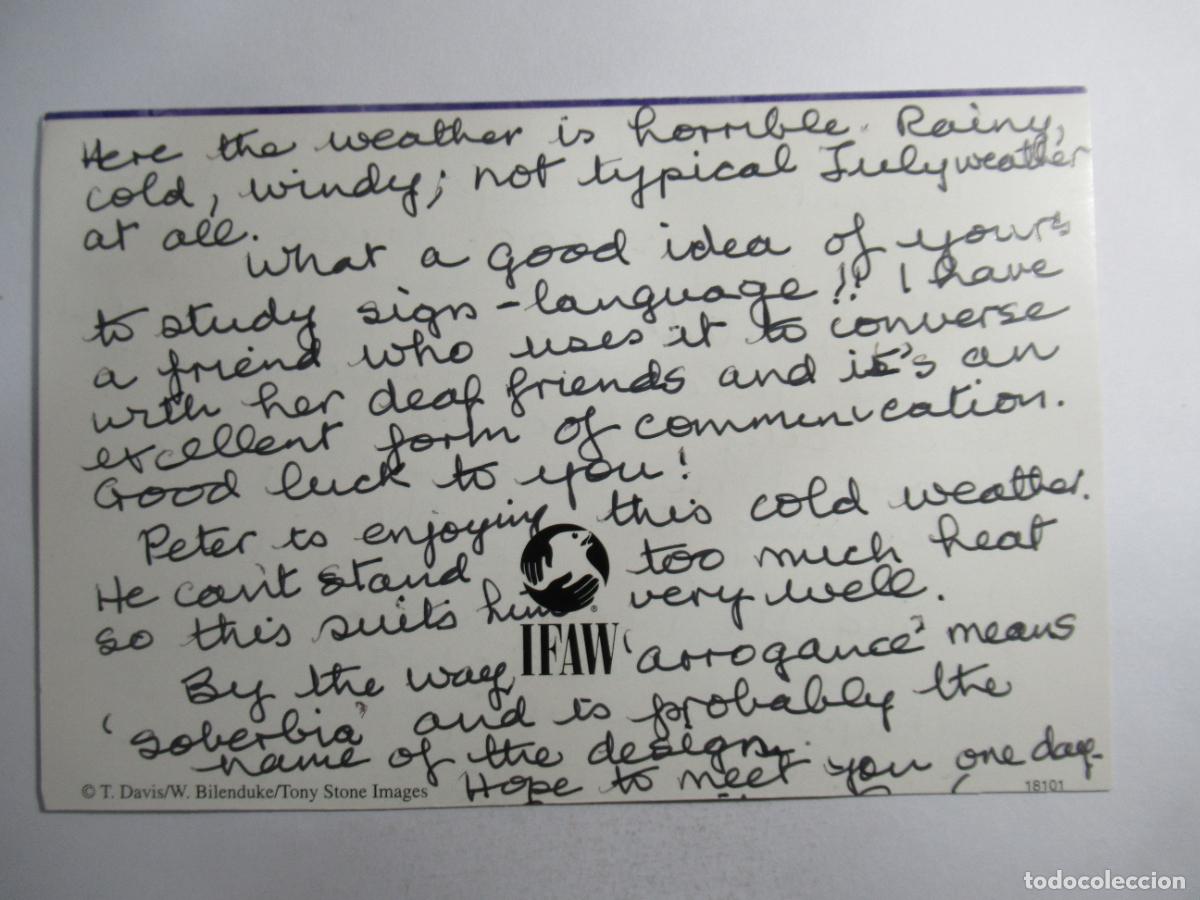 Here the weather is horrible. Rainy,
cold, windy; not typical July weather
at all.
What a good idea of yours
to study sign-language!! I have
a friend who uses it to converse
with her deaf friends and it's an
excellent form of communication.
Good luck to you!
Peter is enjoying this cold weather.
He can't stand too much heat
so this suits him very well.
IFAW
®
By the way, 'arrogance' means
'soberbia' and is probably the
name of the design.
Hope to meet you one day.
© T. Davis/W. Bilenduke/Tony Stone Images
18101
todocoleccion